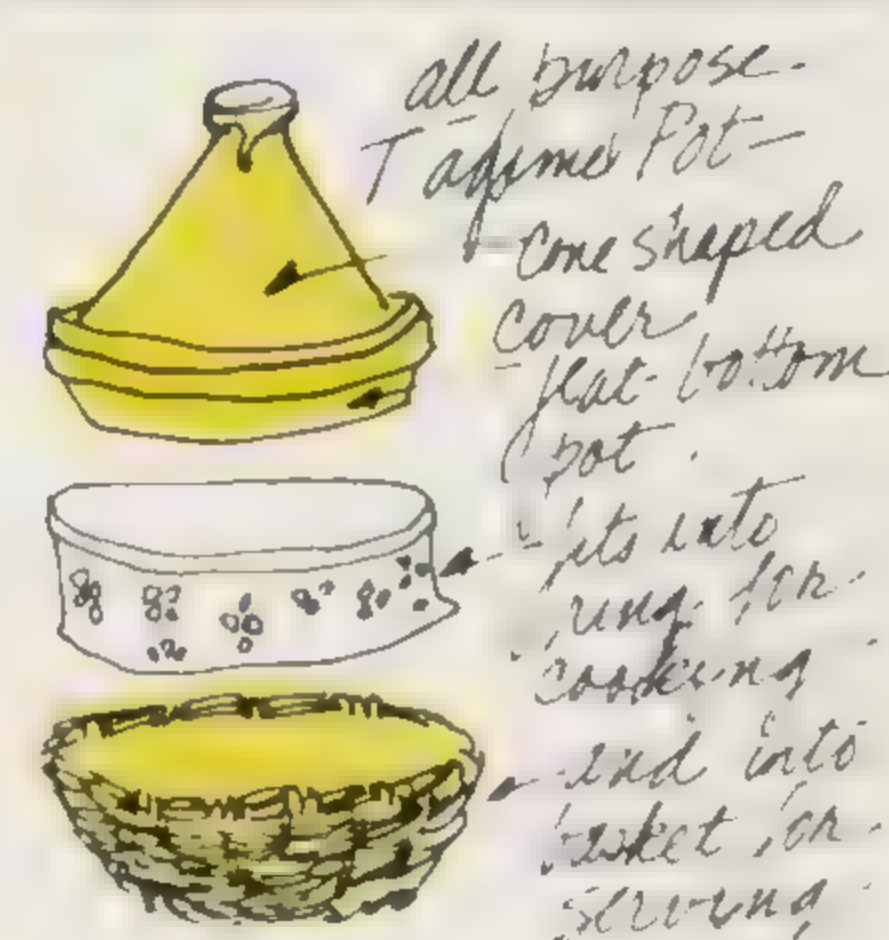 all purpose
Tagine Pot -
- cone shaped
cover
- flat-bottom
pot
- fits into
ring for
cooking
and into
basket for
serving